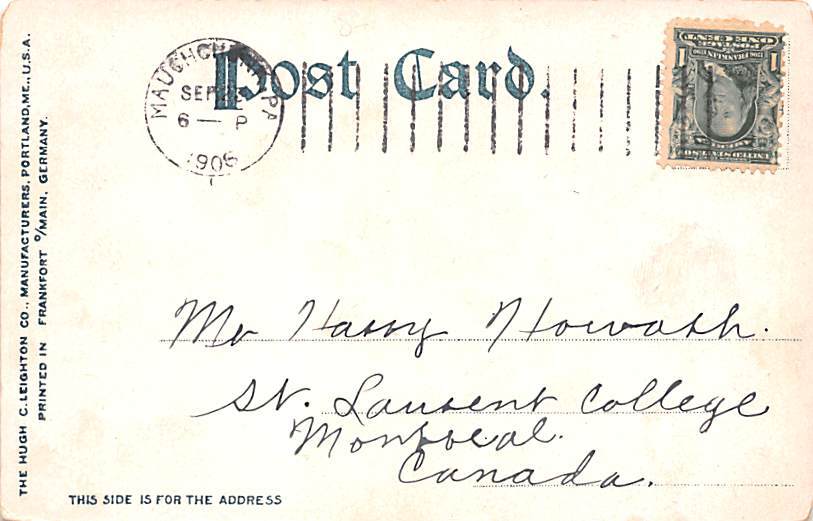 Post Card.
MAUCH CHUNK, PA
SEP
6 — P
1906
ONE CENT
POSTAGE
1 1
FRANKLIN
UNITED STATES OF AMERICA
Mr Harry Howarth.
St. Laurent College
Montreal.
Canada.
THIS SIDE IS FOR THE ADDRESS
THE HUGH C. LEIGHTON CO., MANUFACTURERS, PORTLAND, ME., U.S.A.
PRINTED IN FRANKFORT o/MAIN, GERMANY.